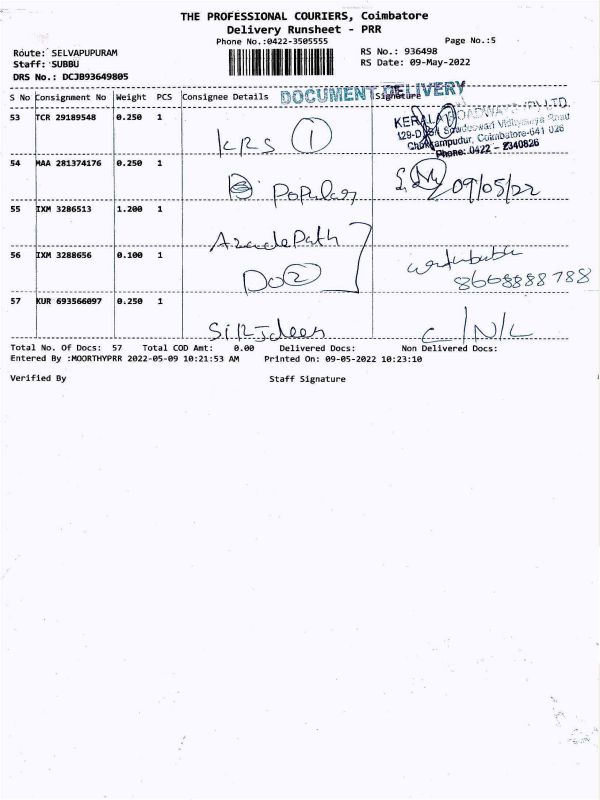 THE PROFESSIONAL COURIERS, Coimbatore
Delivery Runsheet - PRR
Phone No.:0422-3505555
Page No.:5
Route: SELVAPUPURAM
RS No.: 936498
Staff: SUBBU
RS Date: 09-May-2022
DRS No.: DCJB93649805
S No Consignment No Weight PCS Consignee Details DOCUMENT DELIVERY Signature
53 TCR 29189548 0.250 1
KRS 1
KERALA ROADWAYS (P) LTD.
Coimbatore-641 026
Phone: 0422 - 2340826
54 MAA 281374176 0.250 1
Popular
09/05/22
55 IXM 3286513 1.200 1
56 IXM 3288656 0.100 1
Do 2
8668888788
57 KUR 693566097 0.250 1
C/N/C
Total No. Of Docs: 57 Total COD Amt: 0.00 Delivered Docs: Non Delivered Docs:
Entered By :MOORTHYPRR 2022-05-09 10:21:53 AM Printed On: 09-05-2022 10:23:10
Verified By Staff Signature